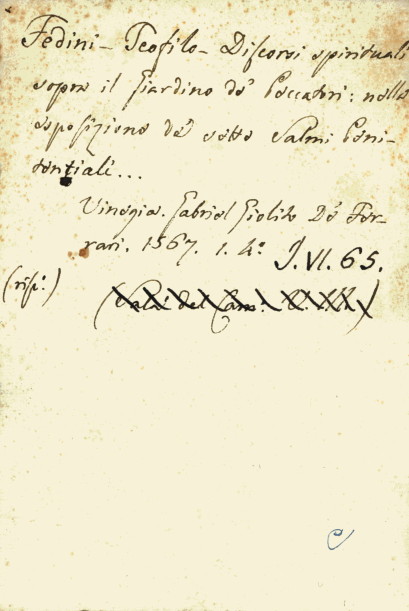 Fedini - Teofilo - Discorsi spirituali
sopra il Giardino de' Peccatori: nella
esposizione de' sette Salmi Peni-
tentiali...
Vinegia. Gabriel Giolito De' Fer-
rari. 1567. 1. 4.° J. VI. 65.
(risp.°)